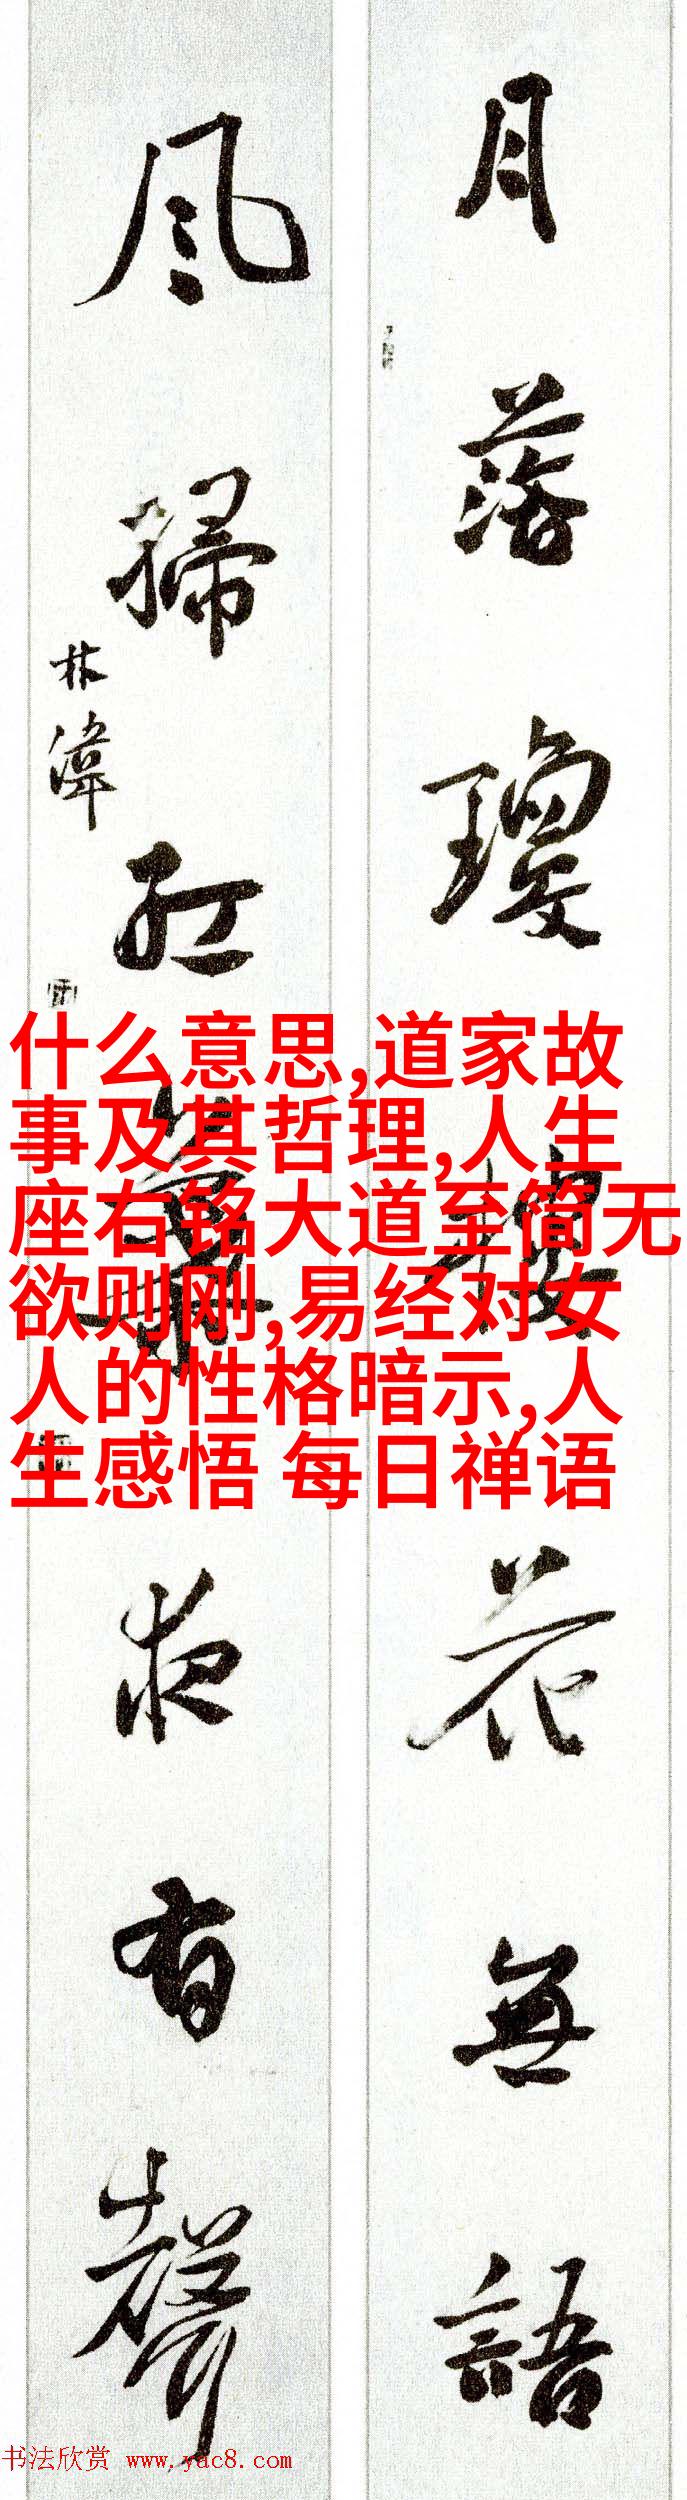 月落瓊樓花無語
風掃紅夜有聲
林
什么意思,道家故
事及其哲理,人生
座右铭大道至简无
欲则刚,易经对女
人的性格暗示,人
生感悟 每日禅语
书法欣赏 www.yac8.com